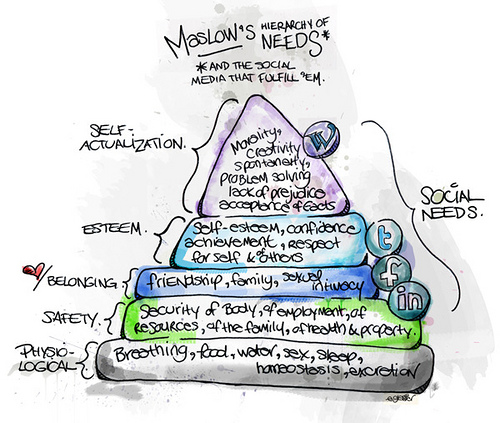 MASLOW'S HIERARCHY OF
NEEDS*
*AND THE SOCIAL
MEDIA THAT FULFILL 'EM.
SELF-
ACTUALIZATION.
Morality,
creativity
spontaneity,
problem solving
lack of prejudice
acceptance of facts
W
SOCIAL
NEEDS.
ESTEEM.
Self-esteem, confidence
achievement, respect
for self & others
t
f
in
BELONGING.
friendship, family, sexual
intimacy
SAFETY.
Security of Body, of employment, of
resources, of the family, of health & property.
PHYSIO-
LOGICAL
Breathing, food, water, sex, sleep,
homeostasis, excretion